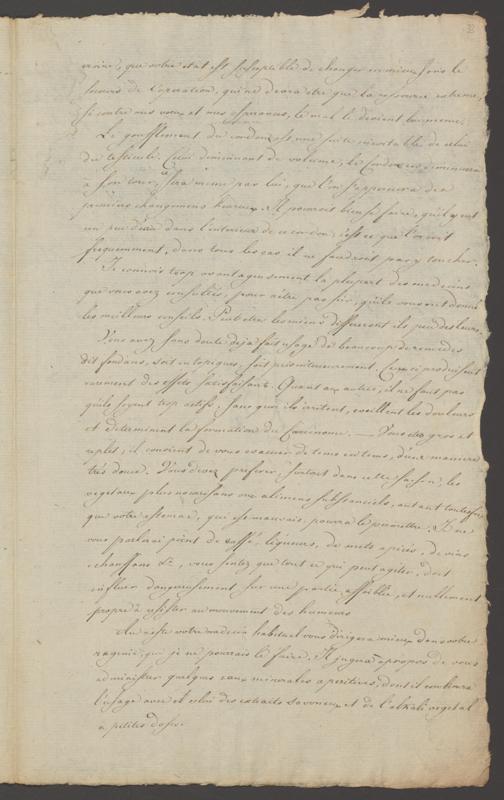 croire, que votre état est susceptible de changer en mieux sans le
secours de l'opération, qui ne devra être que la ressource extreme,
si contre mes vœux et mes esperances, le mal le devient lui même.
Le gonflement du cordon est une suite inévitable de celui
du testicule. Celui ci diminuant de volume, le cordon en diminuera
à son tour, ce sera même par lui, que l'on s'appercevra des
premiers changemens heureux. Il pourroit bien se faire, qu'il y eut
un peu d'eau dans l'interieur de ce cordon, c'est ce que l'on voit
frequemment, dans tous les cas il ne faudroit pas y toucher.
Je connois trop avantageusement la plupart des medecins
que vous avez consultés, pour n'être pas sur, qu'ils vous ont donné
les meilleurs conseils. Peut etre les miens differeront ils peu des leurs.
Vous avez sans doute deja fait usage de beaucoup de remedes
dit fondans, soit en topiques, soit interieurement. Ceux ci produisent
rarement des effets satisfaisans. Quant aux autres, il ne faut pas
qu'ils soyent trop actifs, sans quoi ils irritent, eveillent les douleurs
et determinent la formation du Carcinome. — Vous etes gros et
replet, il convient de vous evacuer de tems en tems, d'une maniere
très douce. Vous devez preferer, surtout dans cette saison, les
vegetaux plus nourrissans aux alimens substanciels, autant toutesfois
que votre estomac, qui est mauvais, pourra le permettre. Je ne
vous parlerai point de caffé, liqueurs, de mets epicés, de vins
echauffans &c, vous sentez que tout ce qui peut agiter, doit
influer dangereusement sur une partie affoiblie, et nullement
propre à resister au mouvement des humeurs
Au reste votre medecin habituel vous dirigera mieux dans votre
regime, que je ne pourrais le faire. Il jugera à propos de vous
administrer quelques eaux minerales aperitives, dont il combinera
l'usage avec celui des extraits savonneux et de l'alkali vegetal
a petites doses.